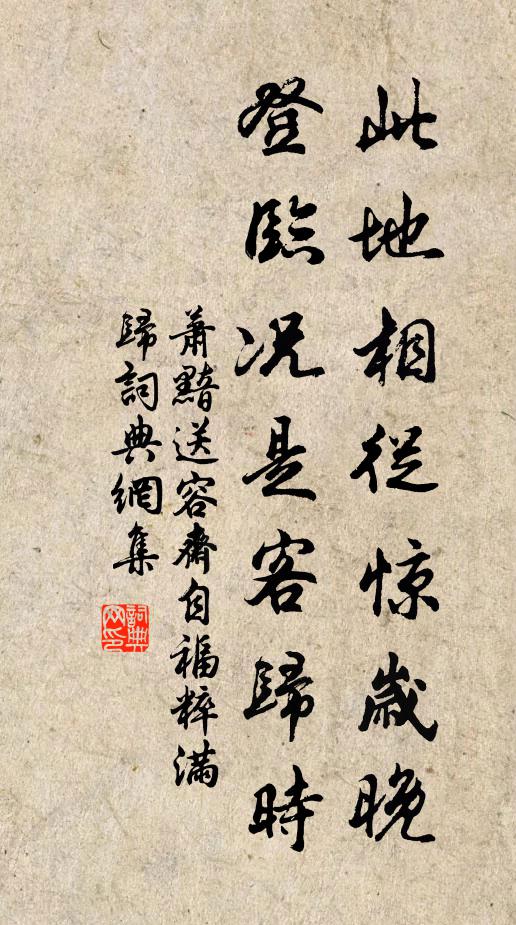 此地相從惊歲晚
登臨況是客歸時
蕭黯送容齋自福粹滿
歸詞典網集
詞典网印